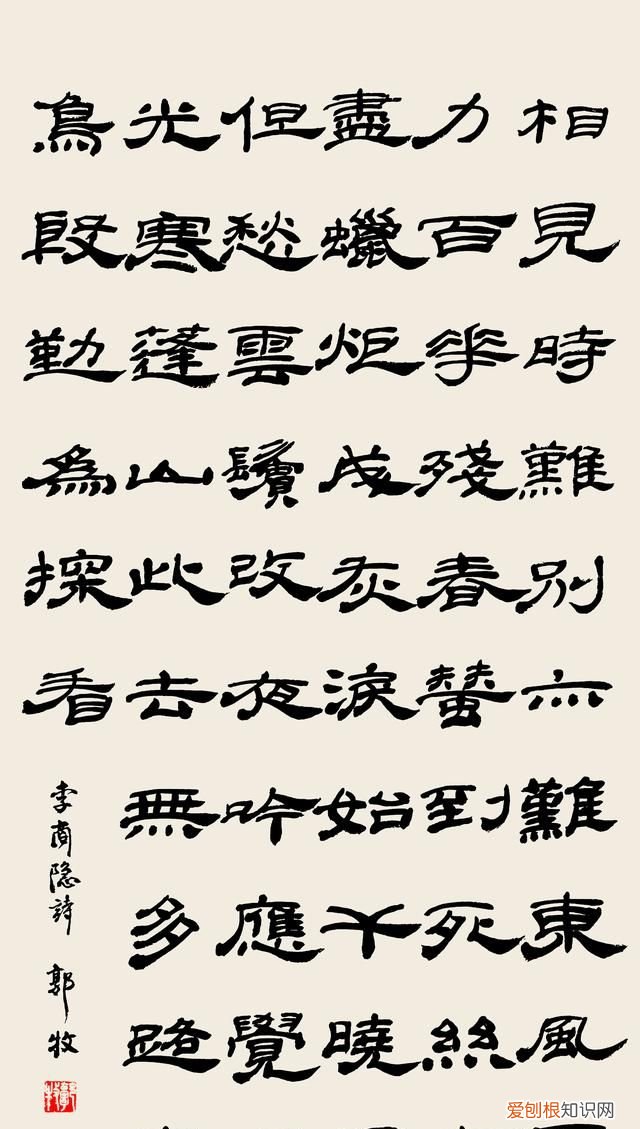 相見時難別亦難東風
力百花殘春蠶到死絲
盡蠟炬成灰淚始干曉
但愁雲鬢改夜吟應覺
光寒蓬山此去無多路
鳥殷勤為探看
李商隐詩 郭牧
爱刨根知识网